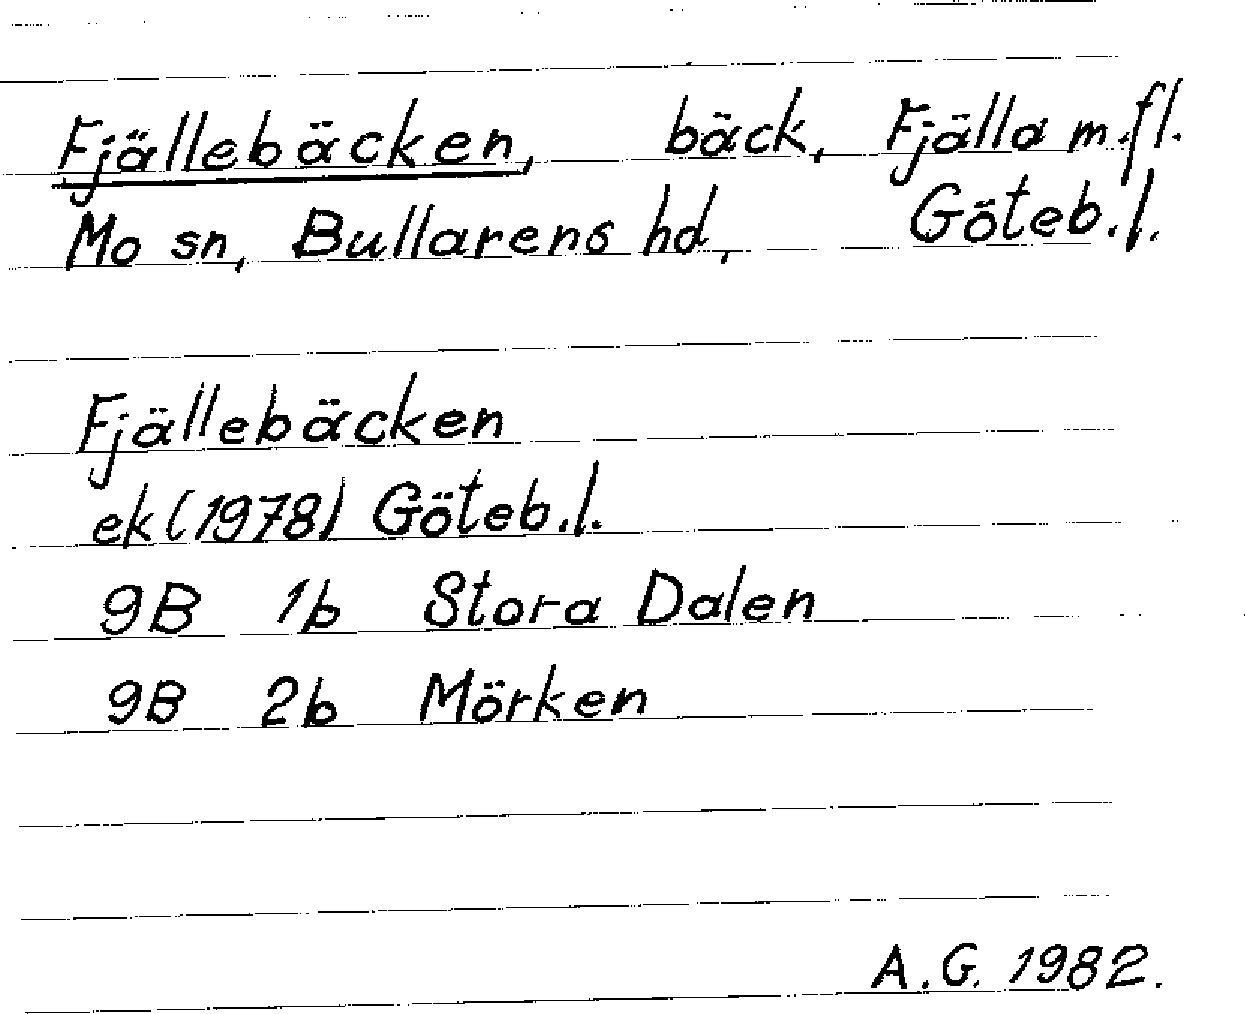 Fjällebäcken, bäck, Fjälla m.fl.
Mo sn, Bullarens hd, Göteb.l.
Fjällebäcken
ek (1978) Göteb.l.
9B 1b Stora Dalen
9B 2b Mörken
A.G. 1982.